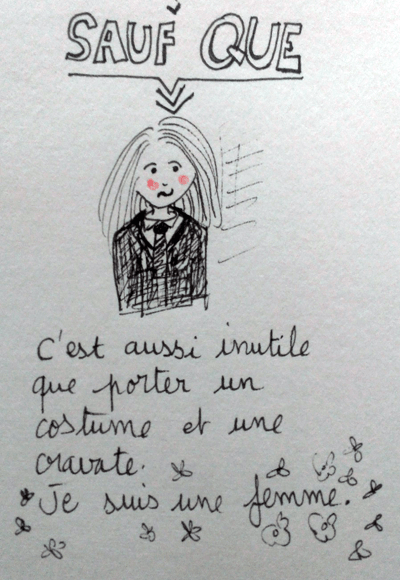 SAUF QUE
C'est aussi inutile
que porter un
costume et une
cravate.
Je suis une femme.